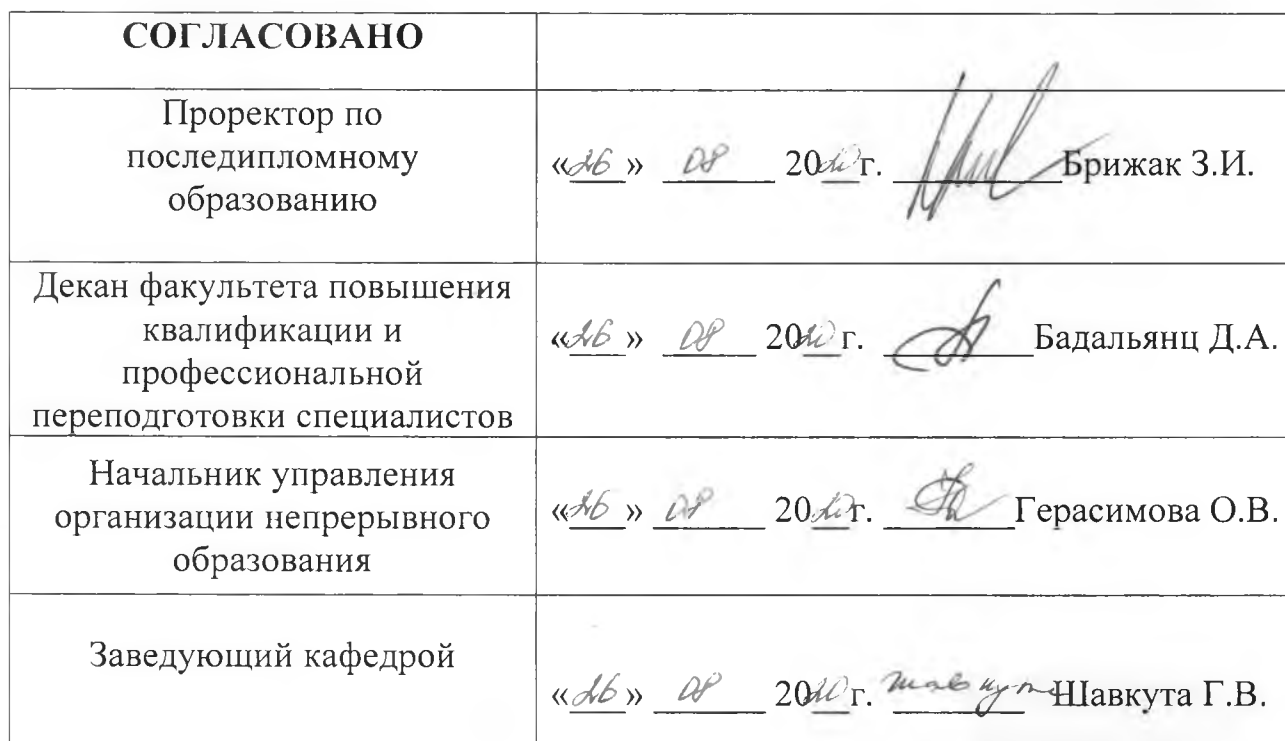 СОГЛАСОВАНО
Проректор по
последипломному
образованию
«26» 08 2020г. Брижак З.И.
Декан факультета повышения
квалификации и
профессиональной
переподготовки специалистов
«26» 08 2020 г. Бадальянц Д.А.
Начальник управления
организации непрерывного
образования
«26» 08 2020г. Герасимова О.В.
Заведующий кафедрой
«26» 08 2020г. Шавкута Г.В.